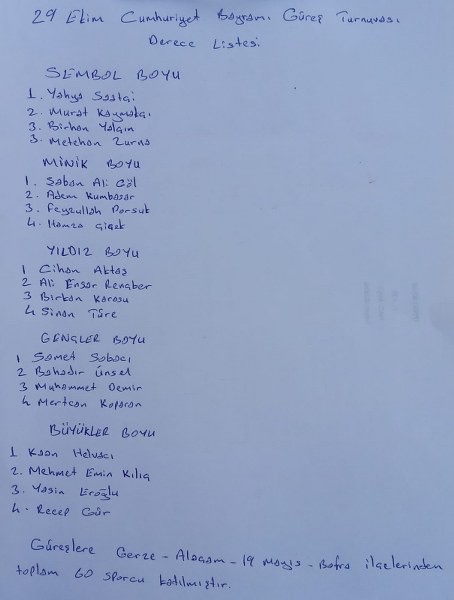 29 Ekim Cumhuriyet Bayramı Güreş Turnuvası
Derece Listesi
SEMBOL BOYU
1. Yahya Saatçi
2. Murat Kaymakçı
3. Birhan Yalgın
3. Metehan Zurna
MİNİK BOYU
1. Şaban Ali Göl
2. Adem Kumbasar
3. Feyzullah Porsuk
4. Hamza Çiçek
YILDIZ BOYU
1 Cihan Aktaş
2 Ali Ensar Rençber
3 Birkan Karasu
4 Sinan Türe
GENÇLER BOYU
1 Samet Sabacı
2 Bahadır Ünsel
3 Muhammet Demir
4 Mertcan Koparan
BÜYÜKLER BOYU
1 Kaan Helvacı
2. Mehmet Emin Kılıç
3. Yasin Eroğlu
4. Recep Gür
Güreşlere Gerze - Alaçam - 19 Mayıs - Bafra ilçelerinden
toplam 60 sporcu katılmıştır.